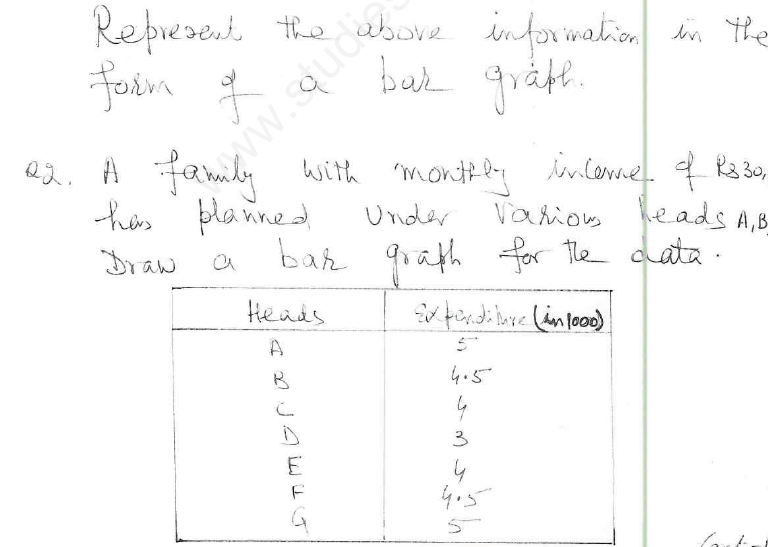 Represent the above information in the
form of a bar graph.
Q2. A family with monthly income of Rs 30,
has planned under various heads A, B,
Draw a bar graph for the data.
Heads Expenditure (in 1000)
A 5
B 4.5
C 4
D 3
E 4
F 4.5
G 5
www.studies